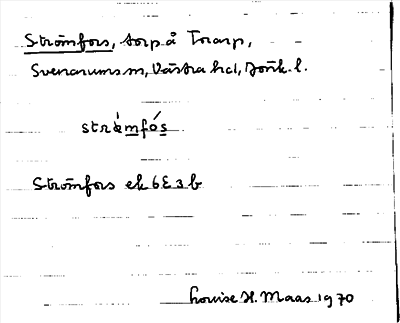 Strömfors, torp å Torarp,
Svenarums sn, Västra hd, Jönk. l.
strö̀mfós
Strömfors ek 6E3b
Louise H. Maas 1970